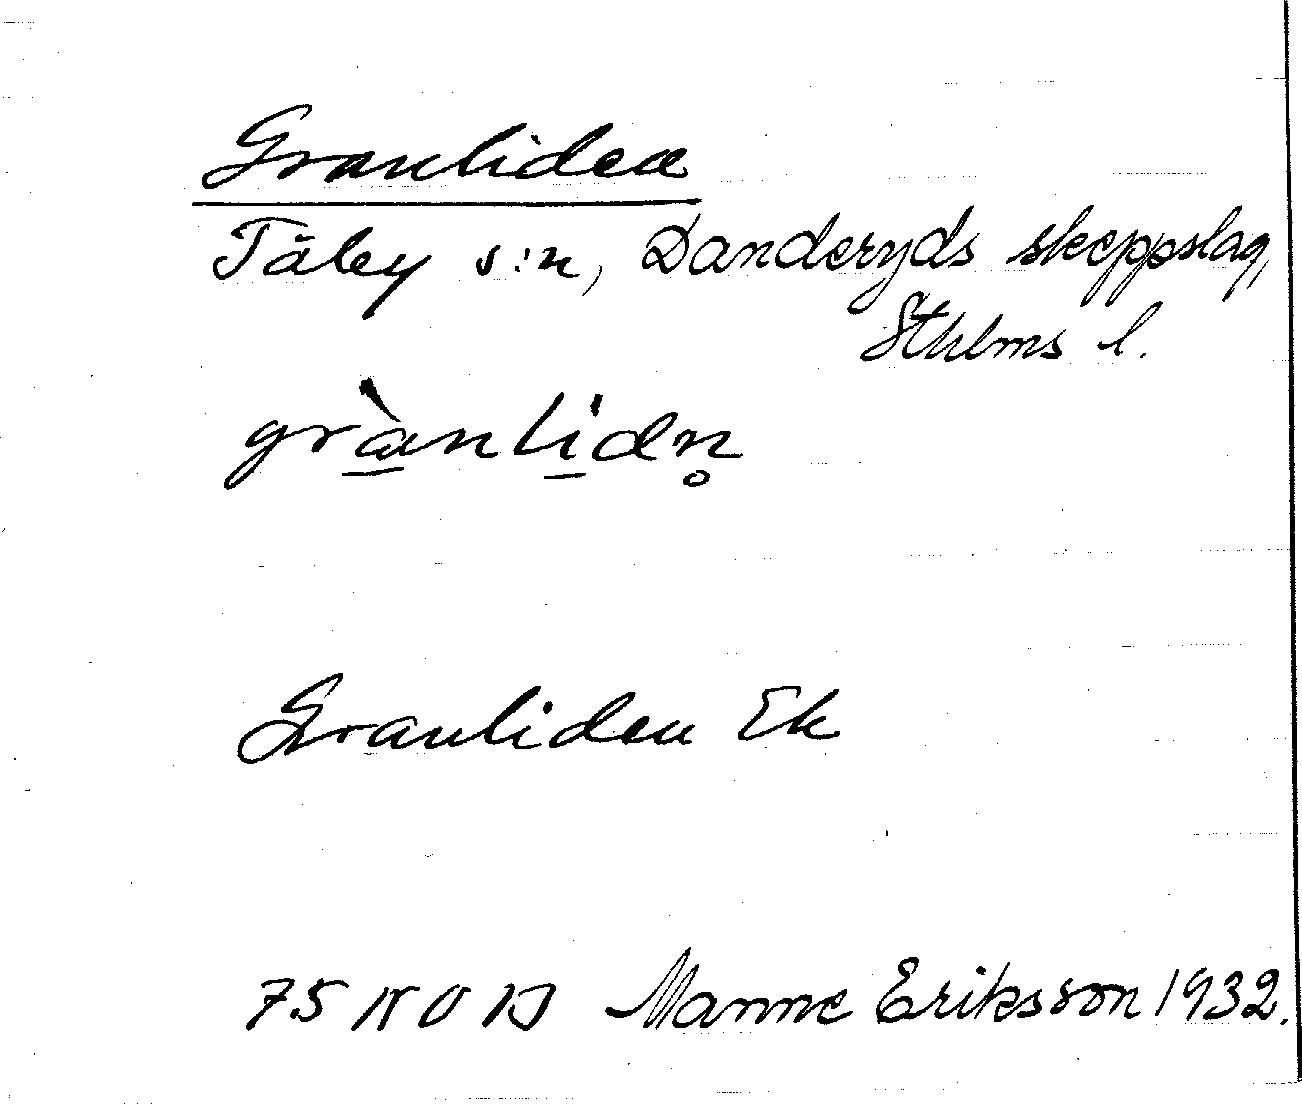 Granliden
Täby s:n, Danderyds skeppslag,
Sthlms l.
grànlidn̥
Granliden Ek
75 NO Manne Eriksson 1932.